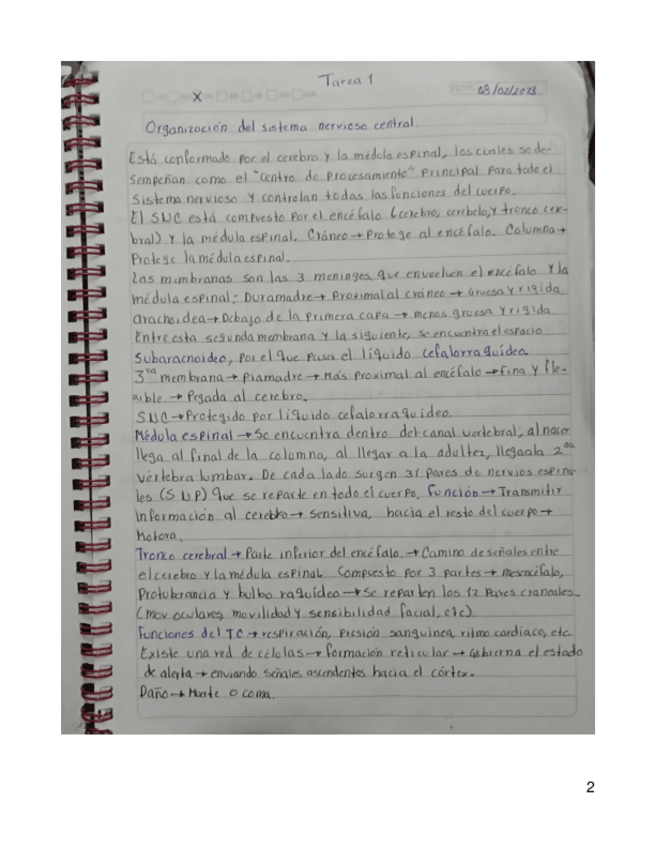 Tarea 1
X
FECHA 08/02/2023
Organización del sistema nervioso central.
Está conformado por el cerebro y la médula espinal, los cuales se de-
sempeñan como el "centro de procesamiento" principal para todo el
sistema nervioso y controlan todas las funciones del cuerpo.
El SNC está compuesto por el encéfalo (cerebro, cerebelo, y tronco cer-
bral) y la médula espinal. Cráneo → Protege al encéfalo. Columna →
Protege la médula espinal.
Las membranas son las 3 meninges que envuelven el encéfalo y la
médula espinal: Duramadre → Proximal al cráneo → Gruesa y rigida
aracnoidea → Debajo de la primera capa → menos gruesa y rigida
Entre esta segunda membrana y la siguiente, se encuentra el espacio
Subaracnoideo, por el que pasa el líquido cefalorraquídea
3ra membrana → Piamadre → Más proximal al encéfalo → fina y fle-
xible → Pegada al cerebro.
SNC → Protegido por líquido cefalorraquideo.
Médula espinal → Se encuentra dentro del canal vertebral; al nacer
llega al final de la columna, al llegar a la adultez, llega a la 2da
vértebra lumbar. De cada lado surgen 31 pares de nervios espina-
les (SNP) que se reparte en todo el cuerpo, Función → Transmitir
información al cerebro → sensitiva, hacia el resto del cuerpo →
Motora.
Tronco cerebral → Parte inferior del encéfalo. → Camino de señales entre
el cerebro y la médula espinal. Compuesto por 3 partes → mesencéfalo,
Protuberancia y bulbo raquídeo → Se reparten los 12 pares craneales.
(mov oculares, movilidad y sensibilidad facial, etc).
Funciones del TC → respiración, presión sanguinea, ritmo cardiaco, etc.
Existe una red de células → formación reticular → Gobierna el estado
de alerta → enviando señales ascendentes hacia el córtex.
Daño → Muerte o coma.
2